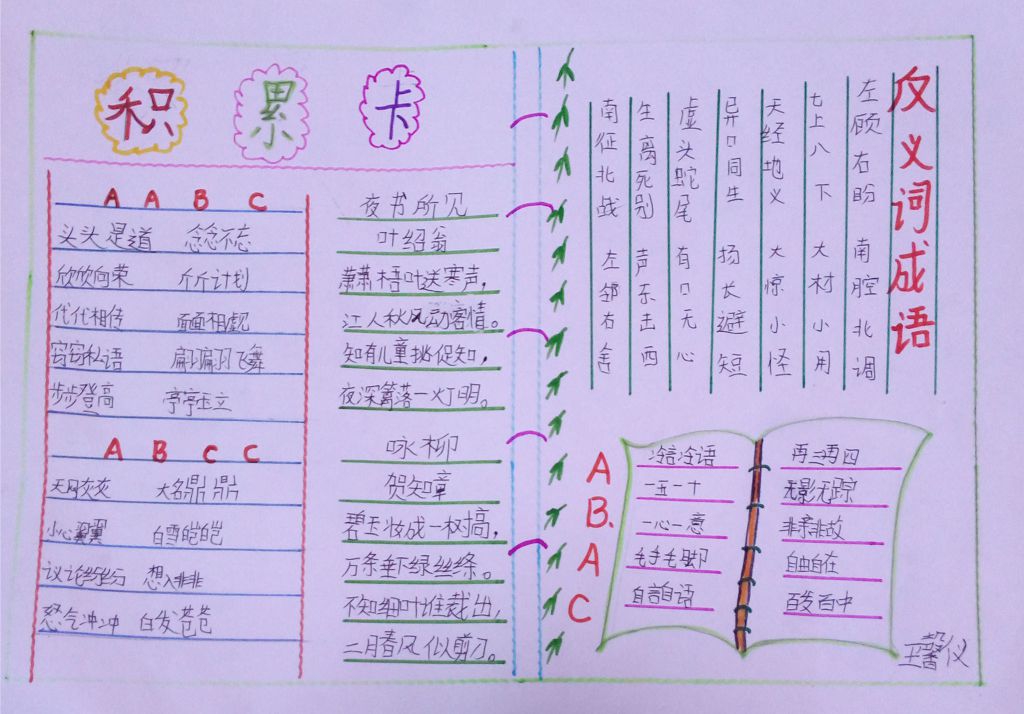 积 累 卡
A A B C
头头是道 念念不忘
欣欣向荣 斤斤计划
代代相传 面面相觑
窃窃私语 扁扁扁羽飞舞
步步登高 亭亭玉立
A B C C
天网灰灰 大名鼎鼎
小心翼翼 白雪皑皑
议论纷纷 想入非非
怒气冲冲 白发苍苍
夜书所见
叶绍翁
萧萧梧叶送寒声，
江人秋风动客情。
知有儿童挑促知，
夜深篱落一灯明。
咏柳
贺知章
碧玉妆成一树搞，
万条垂下绿丝绦。
不知细叶谁裁出，
二月春风似剪刀。
反义词成语
左顾右盼 南腔北调
七上八下 大材小用
天经地义 大惊小怪
异口同生 扬长避短
虚头蛇尾 有口无心
生离死别 声东击西
南征北战 左邻右舍
A B. A C
冷言冷语
一五一十
一心一意
毛手毛脚
自言自语
再三再四
无影无踪
非亲非故
自由自在
百发百中
王馨仪